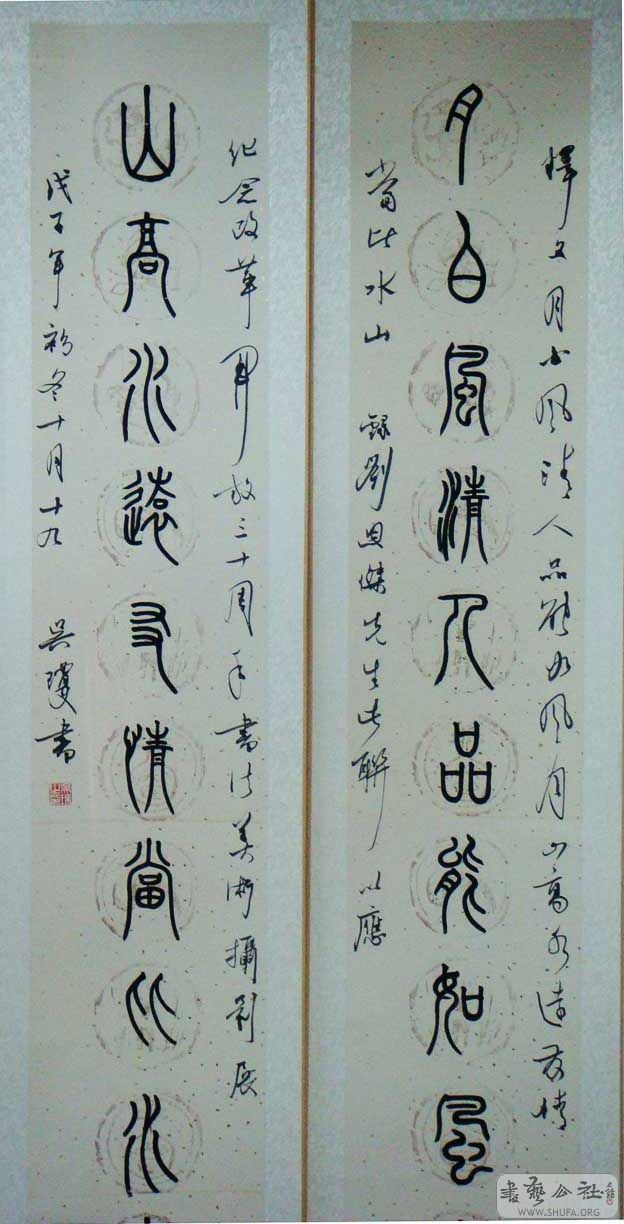 釋文月白風清人品能如風月山高水遠友情
月白風清人品能如風
當比水山 錄劉傑先生此聯 以應
紀念改革開放三十周年書法美術攝影展
山高水遠友情當比水
戊子年初冬十月十九 吳瓊書
書藝公社
WWW.SHUFA.ORG